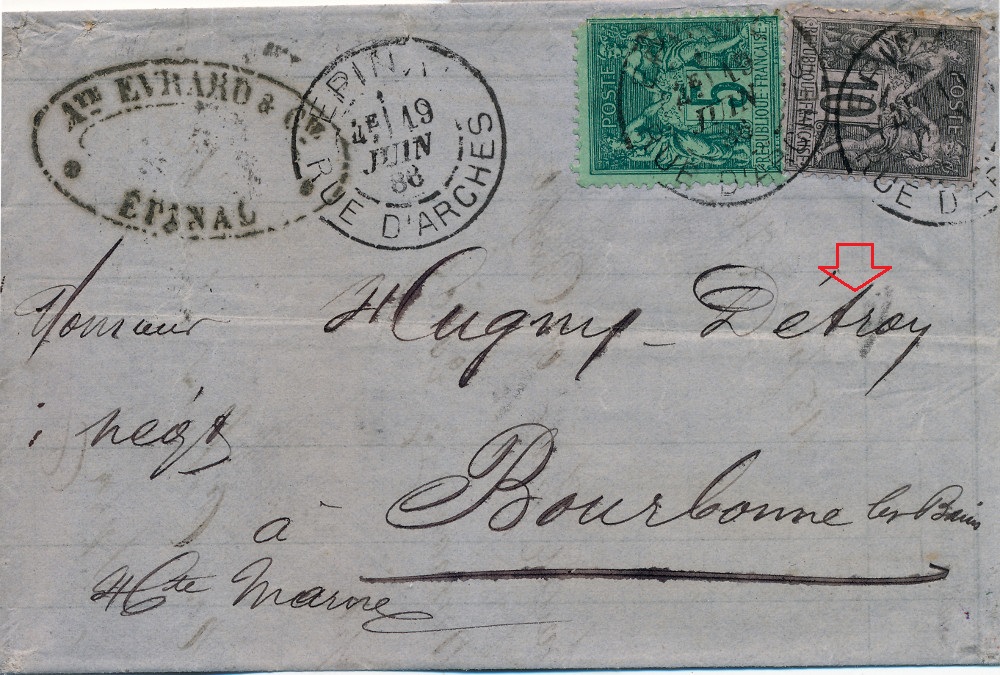 Ate EVRARD & Cie
EPINAL
EPINAL
4E 19
JUIN
86
RUE D'ARCHES
POSTES
5
REPUBLIQUE FRANÇAISE
10
POSTES
REPUBLIQUE FRANÇAISE
19
RUE D'A
RUE D'A
Monsieur Hugny-Détroy
négt
à Bourbonne les Bains
Hte Marne